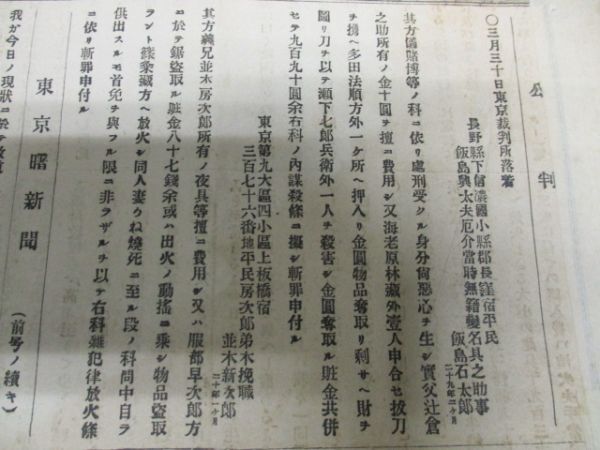 公判
〇三月三十日東京裁判所落着
長野縣下信濃國小縣郡長窪宿平民
飯島興太夫厄介當時無籍變名具之助事
飯島石太郎
二十九年二ヶ月
其方儀賭博等ノ科ニ依リ處刑受クル身分尙惡心ヲ生シ實父辻倉
之助所有ノ金十圓ヲ擅ニ費用シ又海老原林藏外壹人申合セ拔刀
ヲ携ヘ多田法順方外一ケ所ヘ押入リ金圓物品奪取リ剩サヘ財ヲ
圖リ刀ヲ以テ瀨下七郎兵衛外一人ヲ殺害シ金圓奪取ル贓金共併
セテ九百九十圓余右科ノ內謀殺條ニ擬シ斬罪申付ル
東京第九大區四小區上板橋宿
三百七十六番地平民房次郎弟木挽職
並木新次郎
二十年一ヶ月
其方義兄並木房次郎所有ノ夜具等擅ニ費用シ又ハ服部早次郎方
ニ於テ鋸盜取ル贓金八十七錢余或ハ出火ノ動搖ニ乘シ物品盜取
ラント鎌乘藏方ヘ放火シ同人妻うね燒死ニ至ル段ノ科問中自ラ
供出スルモ首免ヲ與フル限ニ非ラザルヲ以テ右科雜犯律放火條
ニ依リ斬罪申付ル
東京曙新聞
(前号ノ續キ)
我カ今日ノ現狀ニ